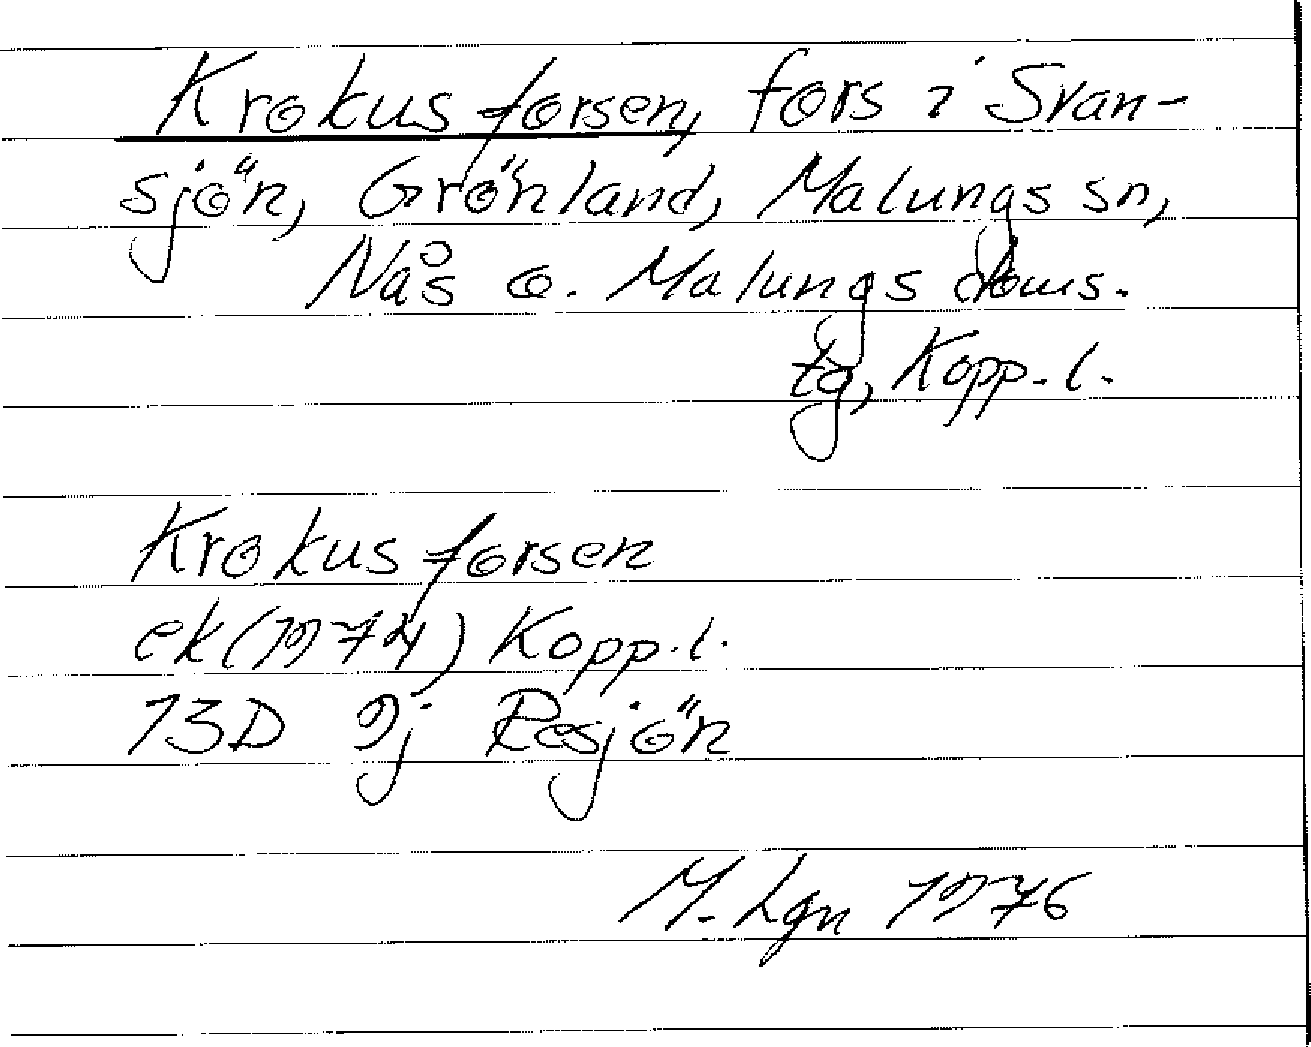 Krokusforsen, fors i Svan-
sjön, Grönland, Malungs sn,
Nås o. Malungs doms.
tg, Kopp. l.
Krokusforsen
ek (1974) Kopp. l.
13D 9j Resjön
M. Lgn 1976